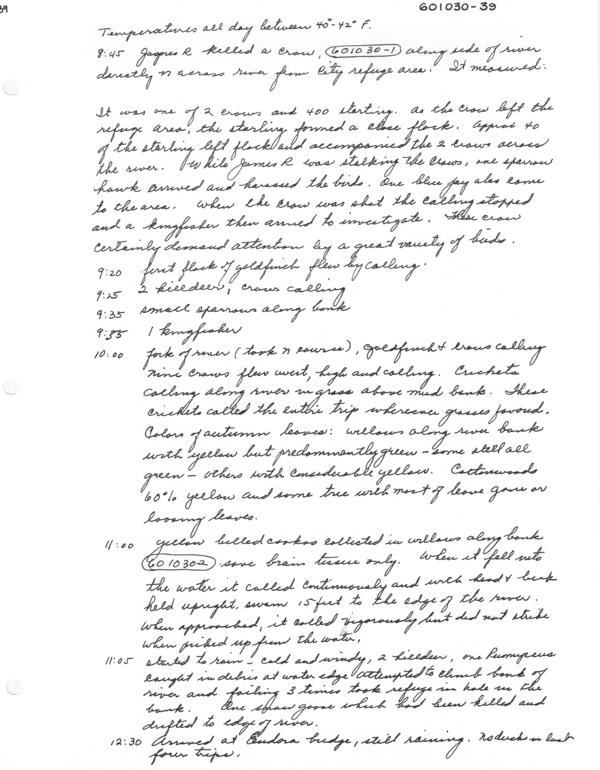 39
601030-39
Temperatures all day between 40°-42° F.
8:45 James R killed a crow, (601030-1) along side of river
directly n across river from City refuge area. It measured:
It was one of 2 crows and 400 starling. As the crow left the
refuge area, the starling formed a close flock. Approx 40
of the starling left flock and accompanied the 2 crows across
the river. While James R was stalking the crows, one sparrow
hawk arrived and harassed the birds. One blue jay also came
to the area. When the crow was shot the calling stopped
and a kingfisher then arrived to investigate. These crow
certainly demand attention by a great variety of birds.
9:20 first flock of goldfinch flew by calling.
9:25 2 killdeer, crows calling
9:35 small sparrows along bank
9:35 1 kingfisher
10:00 fork of river (took n course), goldfinch & crows calling
nine crows flew west, high and calling. Crickets
calling along river in grass above mud bank. These
crickets called the entire trip wherever grasses favored.
Colors of autumn leaves: willows along river bank
with yellow but predominantly green - some still all
green - others with considerable yellow. Cottonwoods
60% yellow and some tree with most of leave gone or
loosing leaves.
11:00 yellow billed cuckoo collected in willows along bank
(601030-2) save brain tissue only. When it fell into
the water it called continuously and with head & beak
held upright, swam 15 feet to the edge of the river.
When approached, it called vigorously but did not strike
when picked up from the water.
11:05 started to rain - cold and windy, 2 killdeer, one Peromyscus
caught in debris at water edge attempted to climb bank of
river and failing 3 times took refuge in hole in the
bank. One snow goose which had been killed and
drifted to edge of river.
12:30 Arrived at Eudora bridge, still raining. No duck on last
four trips.